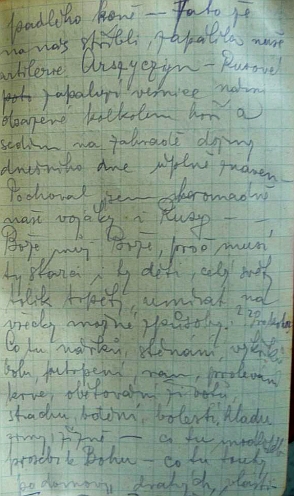 padlého koně — Tato že
na nás stříleli, zapálila naše
artilerie Urszyczyn – Rusové
zapalují vesnice námi
obsazené kolkolem hoří a
sedím na zahradě dojmy
dnešního dne úplně
Pochoval jsem hromadně
naše vojáky i Rusy — —
Bože, můj Bože, proč musí
ty starci i ty děti, celý svět
tolik trpěti, umírat na
všecky možné způsoby.
Co tu nářků, sténání, výkřiků
bolu, utrpení ran, prolévání
krve, obětování životů,
strachu, bdění, bolesti, hladu
zimy, žízně — co tu modliteb
proseb k Bohu – co tu touhy
po domovu, drahých, vlasti